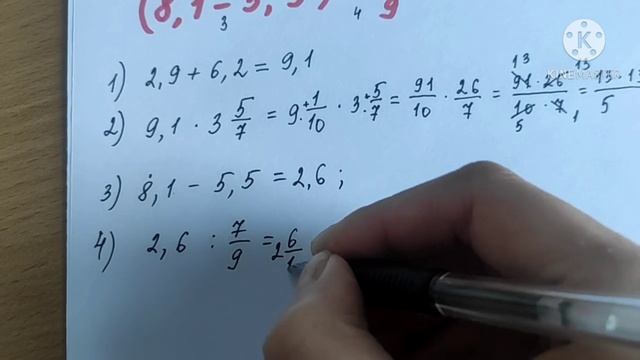 (8,1 - 5,5)
3 4 9
1) 2,9 + 6,2 = 9,1
2) 9,1 · 3 5/7 = 9 1/10 · 3 5/7 = 91/10 · 26/7 = 91 · 26 / 10 · 7 = 13 · 13 / 5
13 13 5 1
3) 8,1 - 5,5 = 2,6 ;
4) 2,6 : 7/9 = 2 6/1
KINEMASTER